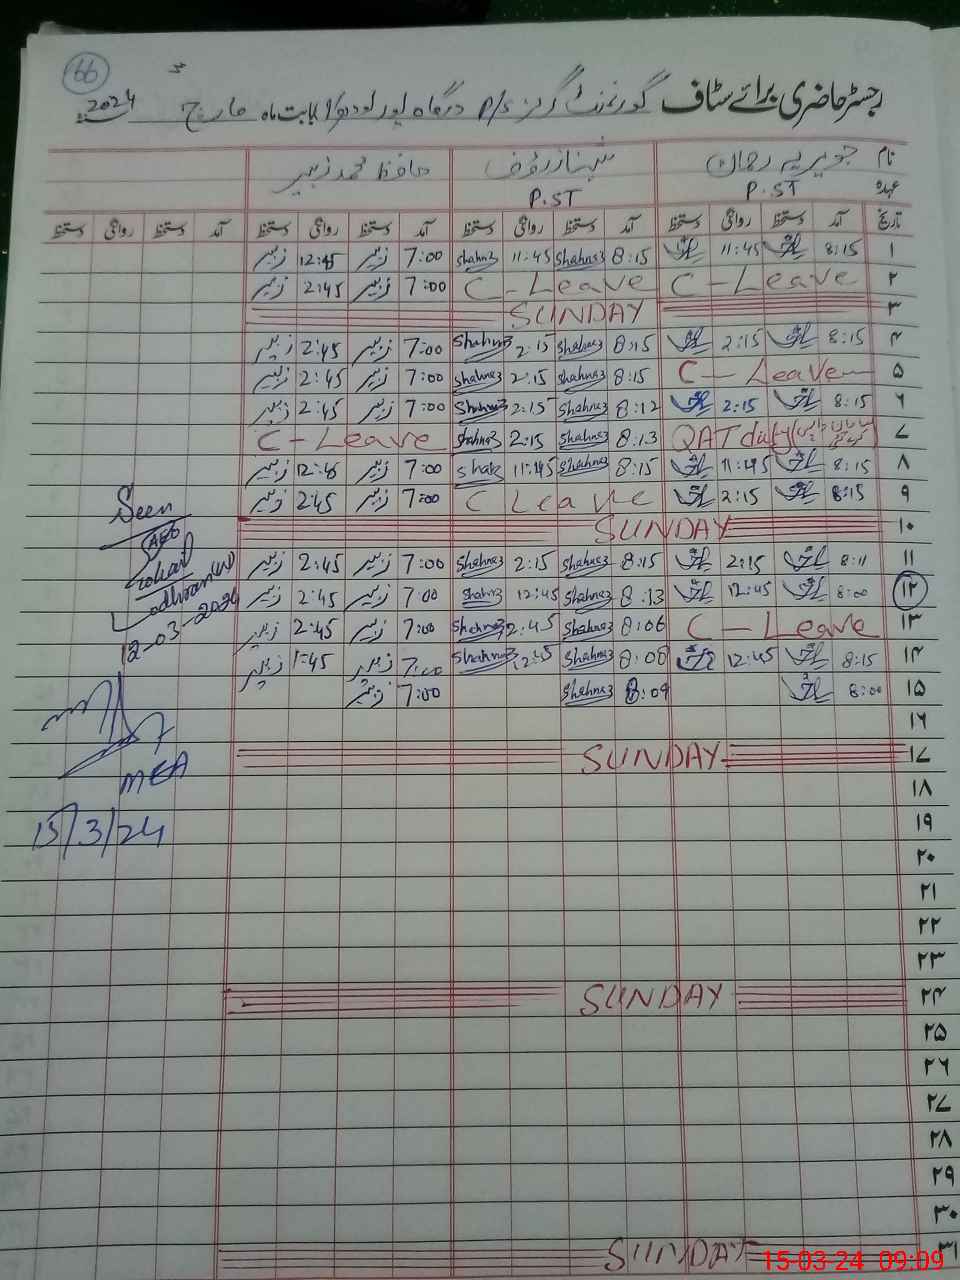 66
رجسٹر حاضری برائے سٹاف گورنمنٹ گرلز P/S درگاہ پور لودھراں بابت ماہ مارچ 2024
نام جویریہ رحمان شہناز رؤف حافظ محمد زبیر
عہدہ P.ST P.ST
تاریخ آمد دستخط روانگی دستخط آمد دستخط روانگی دستخط آمد دستخط روانگی دستخط آمد دستخط روانگی دستخط
۱ 8:15 11:45 8:15 Shahnaz 11:45 Shahnaz 7:00 زبیر 12:45 زبیر
۲ C - Leave C - Leave 7:00 زبیر 2:45 زبیر
۳ SUNDAY
۴ 8:15 2:15 8:15 Shahnaz 2:15 Shahnaz 7:00 زبیر 2:45 زبیر
۵ C - Leave 8:15 Shahnaz 2:15 Shahnaz 7:00 زبیر 2:45 زبیر
۶ 8:15 2:15 8:12 Shahnaz 2:15 Shahnaz 7:00 زبیر 2:45 زبیر
۷ QAT duty 8:13 Shahnaz 2:15 Shahnaz C - Leave
۸ 8:15 11:45 8:15 Shahnaz 11:45 Shah 7:00 زبیر 12:45 زبیر
۹ 8:15 2:15 C Leave 7:00 زبیر 2:45 زبیر
۱۰ SUNDAY
۱۱ 8:11 2:15 8:15 Shahnaz 2:15 Shahnaz 7:00 زبیر 2:45 زبیر
۱۲ 8:00 12:45 8:13 Shahnaz 12:45 Shahnaz 7:00 زبیر 2:45 زبیر
۱۳ C - Leave 8:06 Shahnaz 2:45 Shahnaz 7:00 زبیر 2:45 زبیر
۱۴ 8:15 12:45 8:08 Shahnaz 12:45 Shahnaz 7:00 زبیر 1:45 زبیر
۱۵ 8:00 8:09 Shahnaz 7:00 زبیر
۱۶
۱۷ SUNDAY
۱۸
۱۹
۲۰
۲۱
۲۲
۲۳
۲۴ SUNDAY
۲۵
۲۶
۲۷
۲۸
۲۹
۳۰
۳۱ SUNDAY
Seen
AEO
Lodhran (W)
12-03-2024
MEA
15/3/24
15-03-24 09:09